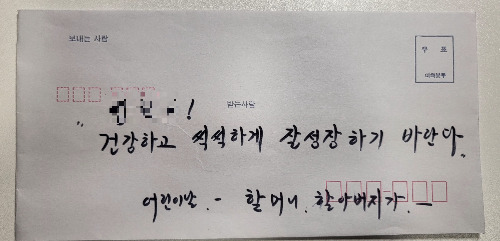 보내는 사람
우 표
!
받는사람
"건강하고 씩씩하게 잘성장하기 바란다."
어린이날. - 할머니. 할아버지가. -